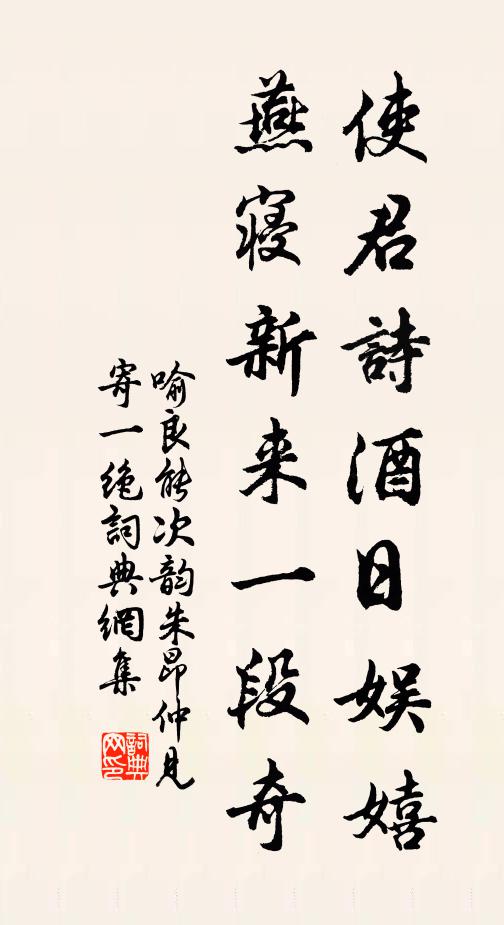 使君詩酒日娛嬉
燕寢新来一段奇
喻良能次韵朱昂仲見
寄一绝詞典網集
詞典网印